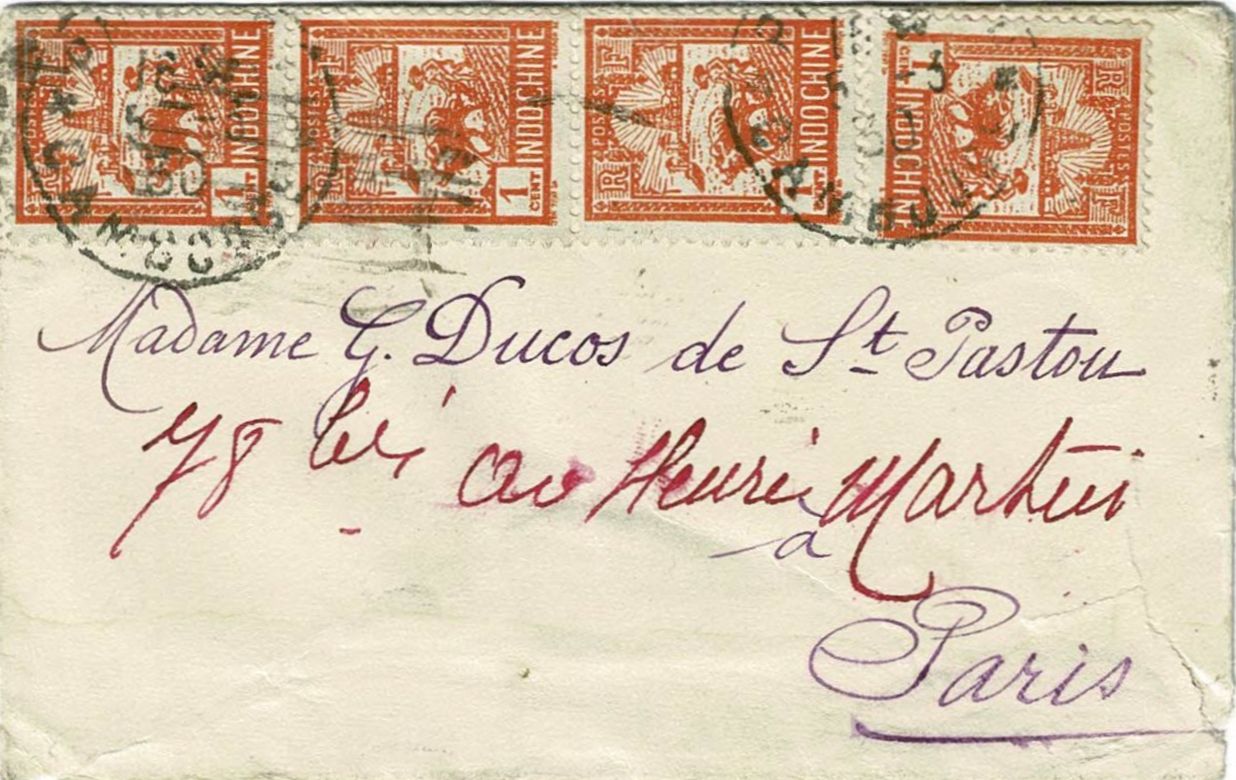 POSTES R F 1 CENT INDOCHINE
POSTES R F 1 CENT INDOCHINE
POSTES R F 1 CENT INDOCHINE
POSTES R F 1 CENT INDOCHINE
CAMBODGE
CAMBODGE
Madame G. Ducos de St Pastou
78 bis av Henri Martin
à
Paris